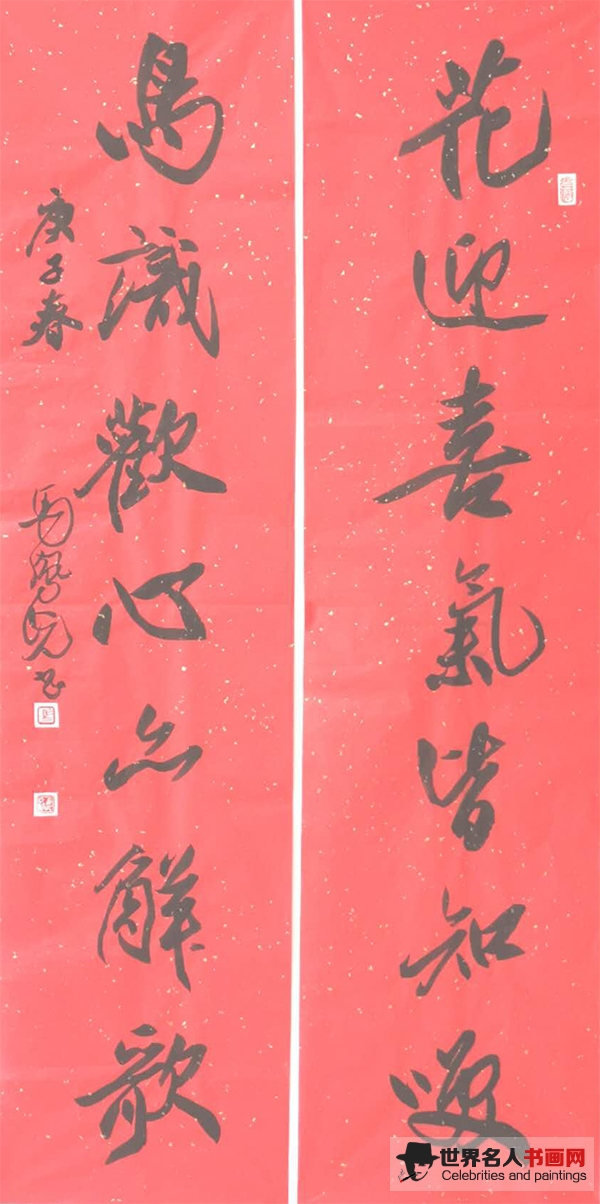 花迎喜氣皆知咲
鳥識歡心亦解歌
庚子春
世界名人书画网
Celebrities and paintings